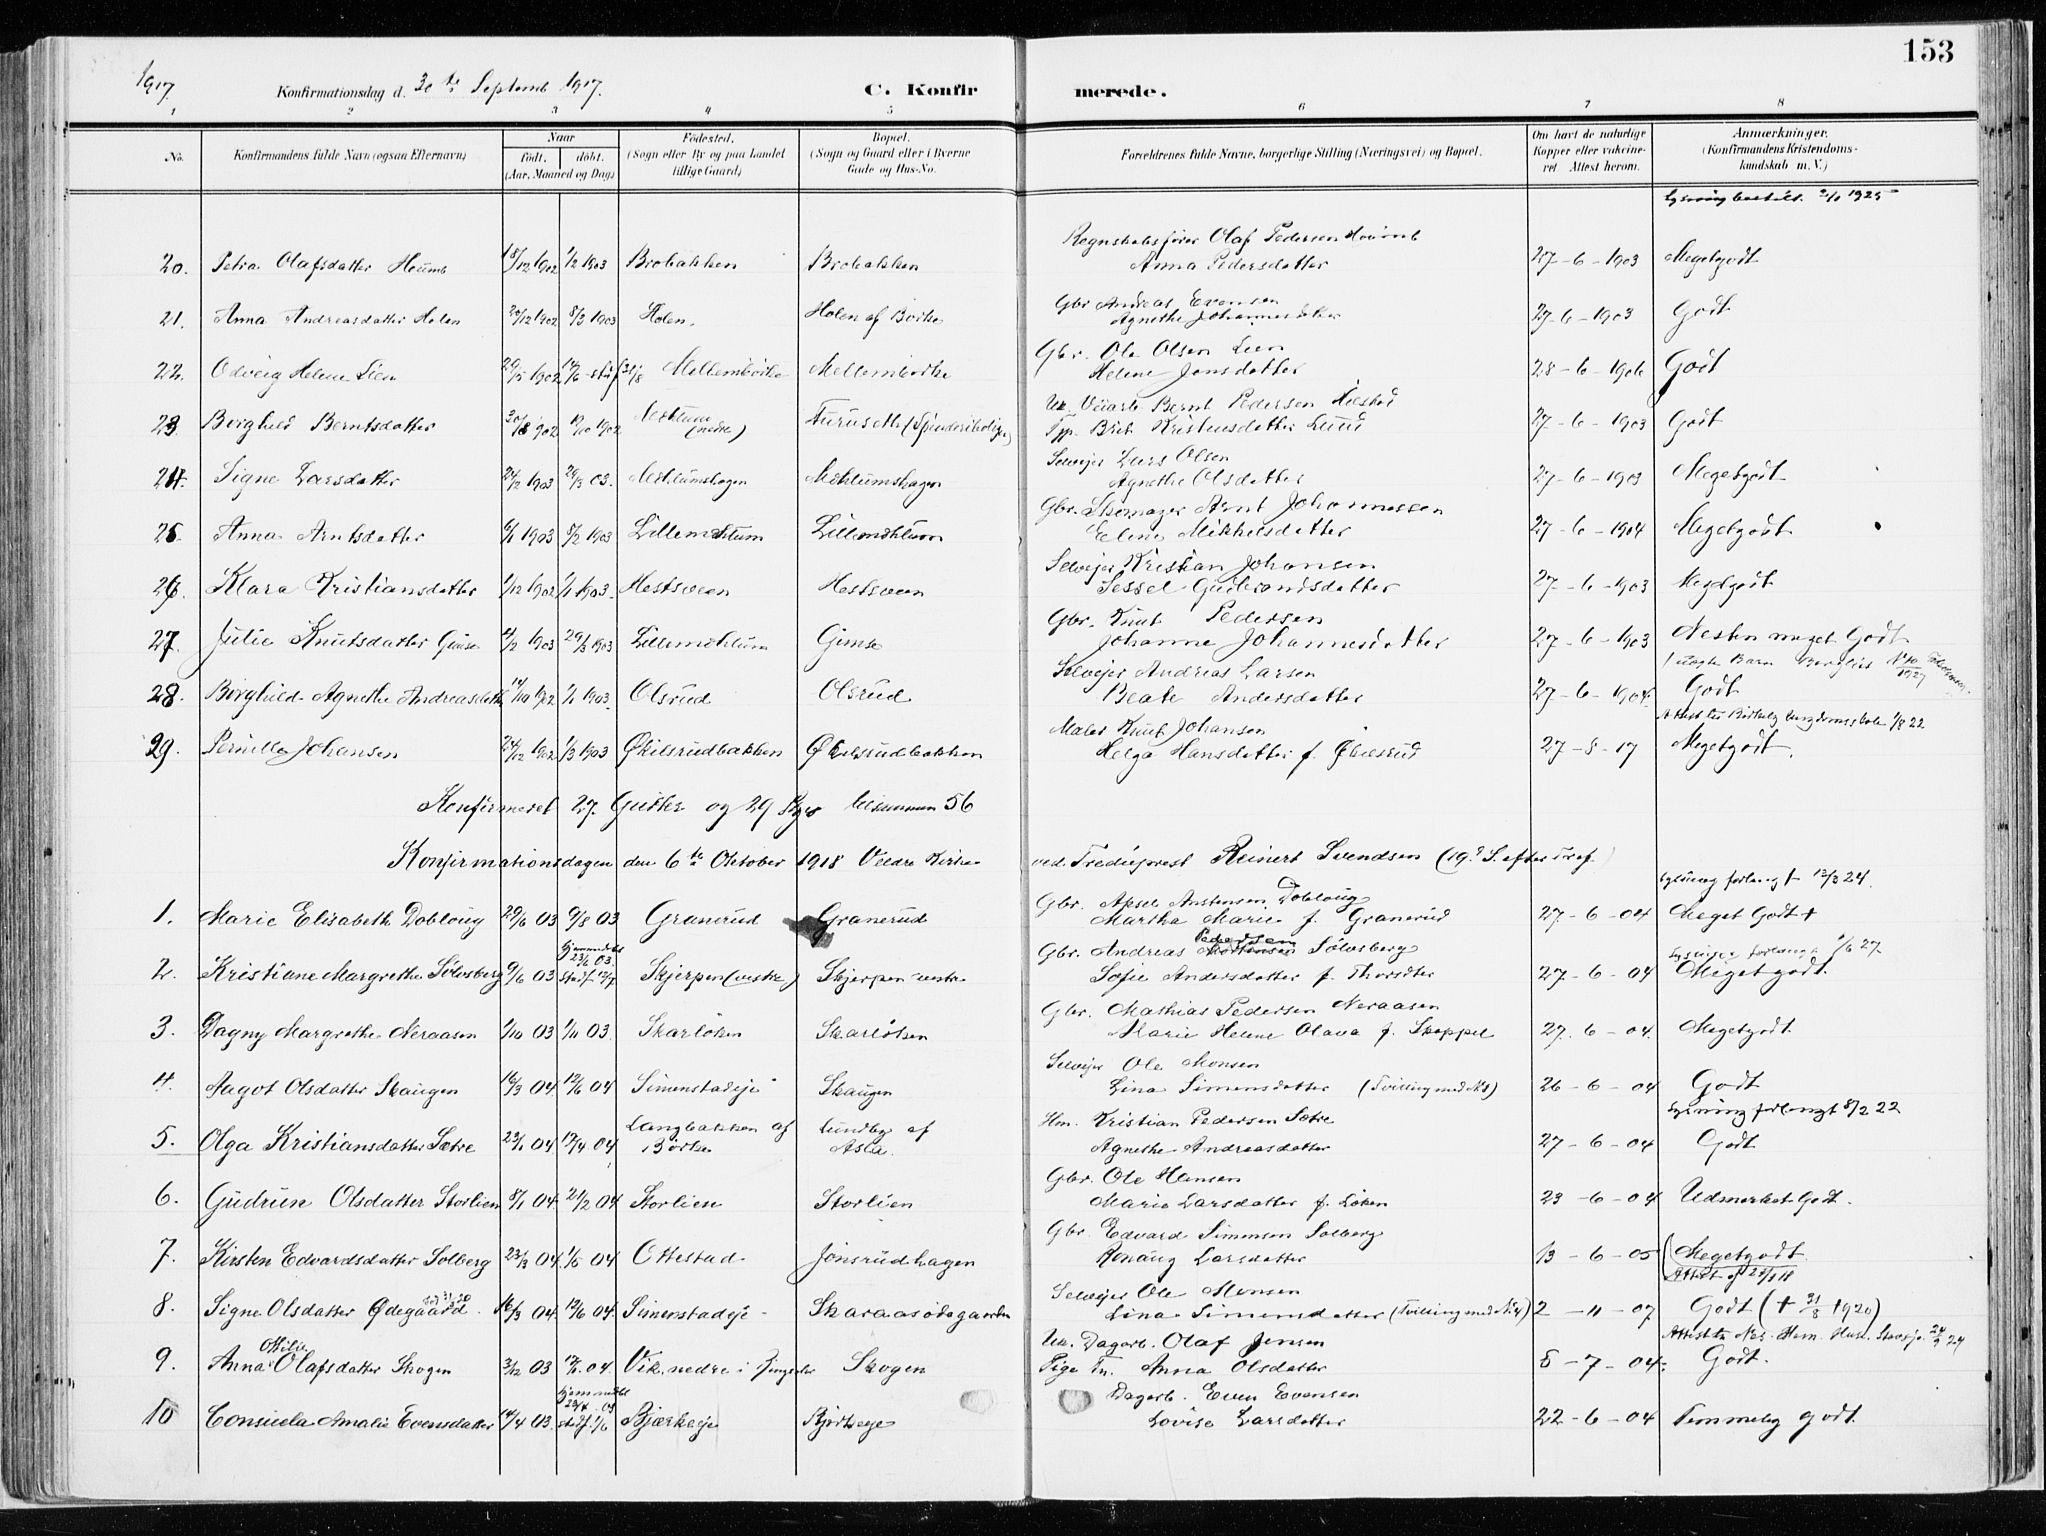 153
1917. Konfirmationsdag d. 30 te Septemb 1917. C. Konfirmerede.
1 2 3 4 5 6 7 8
No. Konfirmandens fulde Navn (ogsaa Efternavn) Naar født, døbt. (Aar, Maaned og Dag) Fødested. (Sogn eller By og paa Landet tillige Gaard) Bopæl. (Sogn og Gaard eller i Byerne Gade og Hus-No. Forældrenes fulde Navne, borgerlige Stilling (Næringsvei) og Bopæl. Om havt de naturlige Kopper eller vakcineret Attest herom. Anmærkninger. (Konfirmandens Kristendomskundskab m. V.)
20. Petra Olafsdatter Houmb 18/12 1902 1/2 1903 Brobakken Brobakken Regnskabsfører Olaf Pedersen Houmb Anna Pedersdatter 27-6-1903 Megetgodt
21. Anna Andreasdatter Holen 20/12 1902 8/3 1903 Holen. Holen af Børke Gbr Andreas Evensen Agnethe Johannesdatter 27-6-1903 Godt
22. Odveig Helene Lien 1902 Mellembørke Mellembørke Gbr. Ole Olsen Lien Helene Jonsdatter 28-6-1906 Godt
23. Borghild Berntsdatter 1902 1902 Mehlum (nedre) Furuseth Bernt Pedersen Brit Kristensdatter 27-6-1903 Godt
24. Signe Larsdatter 24/2 1903 29/3 03. Mehlumshagen Mehlumshagen Selveier Lars Olsen Agnethe Olsdatter 27-6-1903 Megetgodt
25. Anna Arntsdatter 6/1 1903 8/2 1903 Lillemehlum Lillemehlum Gbr. Skomager Arnt Johannessen Elene Mikkelsdatter 27-6-1904 Megetgodt
26. Klara Kristiansdatter 1/12 1902 1/1 1903. Hestsveen Hestsveen Selveier Kristian Johansen Sessel Gudbrandsdatter 27-6-1903 Megetgodt
27. Julie Knutsdatter Gimse 1903 29/3 1903 Lillemehlum Gimse Gbr. Knut Pedersen Johanne Johannesdatter 27-6-1903 Nesten meget Godt
28. Borghild Agnethe Andreasdatter 1902 1/1 1903. Olsrud Olsrud Selveier Andreas Larsen Beate Andersdatter 27-6-1904. Godt
29. Pernille Johansen 24/12 1902 1/3 1903 Økilsrudbakken Økilsrudbakken Maler Knut Johansen Helga Hansdatter f. Økilsrud 27-8-17 Megetgodt.
Konfirmeret 27. Gutter og 29 Piger tilsammen 56
Konfirmationsdagen den 6 te Oktober 1918 Veldre Kirke ved Trediepræst Reinert Svendsen (19. S. efter Tref.)
Lysning forlangt 12/3 24.
1. Marie Elisabeth Dobloug 29/6 03 9/8 03 Granerud Granerud Gbr. Aksel Anstensen Dobloug Martha Marie f. Granerud 27-6-04 Meget Godt +
Lysning forlangt 27.
2. Kristiane Margrethe Sølvsberg 9/6 03 Hjemmedøbt 23/6 03. Stadf. 12/7 Skjerpen (vestre) Skjerpen vestre Gbr. Andreas Pedersen Sølvsberg Sofie Andersdatter f. 27-6-04 Megetgodt.
3. Dagny Margrethe Neraasen 1/10 03 1/11 03. Skarløken Skarløken Gbr. Mathias Pedersen Neraasen Marie Helene Olava f. Skappel 27.-6-04. Megetgodt.
4. Aagot Olsdatter Skaugen 16/3 04 12/6 04 Simenstadeje Skaugen Selveier Ole Monsen Lina Simensdatter (Tvilling med No 8) 26-6-04 Godt
Lysning forlangt 8/2 22
5. Olga Kristiansdatter Sætre 23/1 04 17/4 04 Langbakken af Børke Lundby af Asla. Hm. Kristian Pedersen Sætre Agnethe Andreasdatter 27-6-04 Godt
6. Gudrun Olsdatter Storlien 8/1 04. 21/2 04 Storlien Storlien Gbr. Ole Hansen Marie Larsdatter f. Løken 23-6-04 Udmerket Godt.
7. Kirsten Edvardsdatter Solberg 23/3 04 1/5 04 Ottestad Jønsrudhagen Gbr. Edvard Simensen Solberg Rønaug Larsdatter 13-6-05 Megetgodt.
8. Signe Olsdatter Ødegaard. 16/3 04. 12/6 04. Simenstadeje Skaraasødegaarden Selveier Ole Monsen Lina Simensdatter (Tvilling med No 4) 2-11-07 Godt († 31/8 1920)
9. Anna Ottilie Olafsdatter Skogen 3/12 03 04. Vik, nedre i Ringsaker Skogen Uk. Dagarb. Olaf Jensen Pige Tn. Anna Olsdatter 5-7-04. Godt.
10 Consuela Amalie Evensdatter 14/4 03. Hjemmedøbt 03 stadf. 1/6 Bjærkeeje Bjørkeeje Dagarb. Even Evensen Lovise Larsdatter 22-6-04 Temmelig godt.